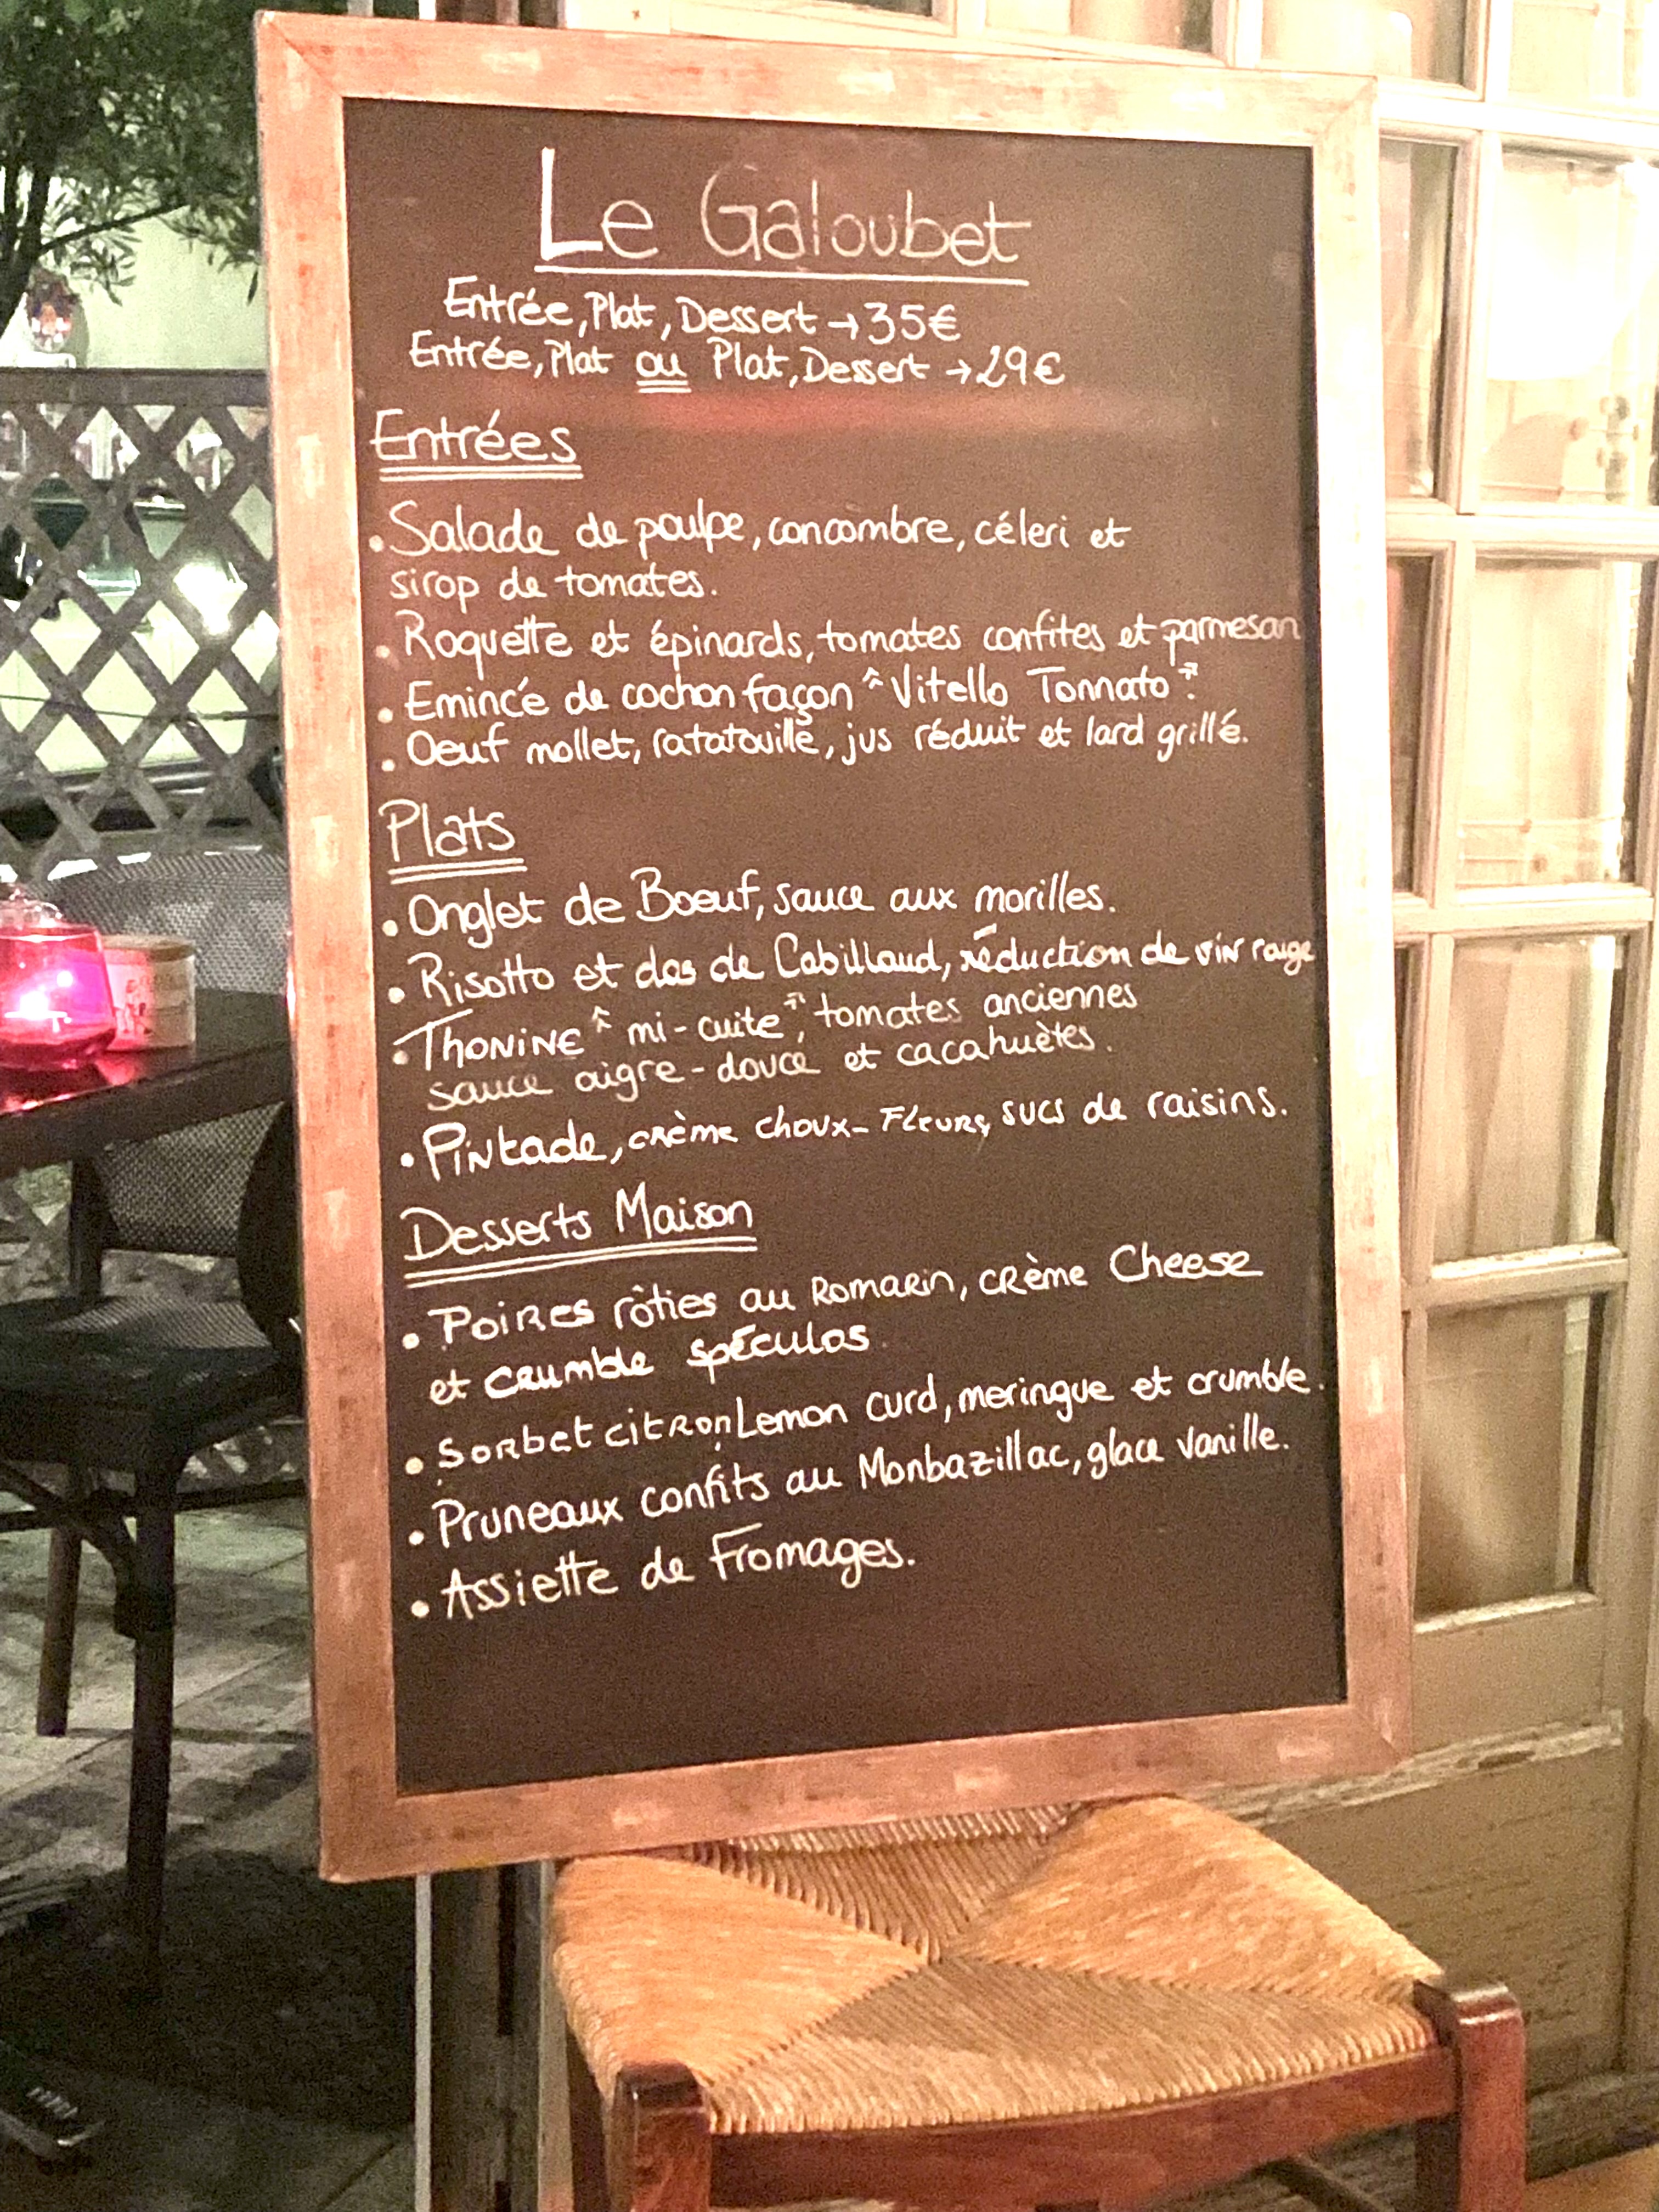 Le Galoubet
Entrée, Plat, Dessert → 35€
Entrée, Plat ou Plat, Dessert → 29€
Entrées
• Salade de poulpe, concombre, céleri et
sirop de tomates.
• Roquette et épinards, tomates confites et parmesan
• Emincé de cochon façon "Vitello Tonnato".
• Oeuf mollet, ratatouille, jus réduit et lard grillé.
Plats
• Onglet de Boeuf, sauce aux morilles.
• Risotto et dos de Cabillaud, réduction de vin rouge
• Thonine "mi-cuite", tomates anciennes
sauce aigre-douce et cacahuètes.
• Pintade, crème choux-Fleurs, sucs de raisins.
Desserts Maison
• Poires rôties au Romarin, crème Cheese
et crumble spéculos.
• Sorbet citron, Lemon curd, meringue et crumble.
• Pruneaux confits au Monbazillac, glace vanille.
• Assiette de Fromages.